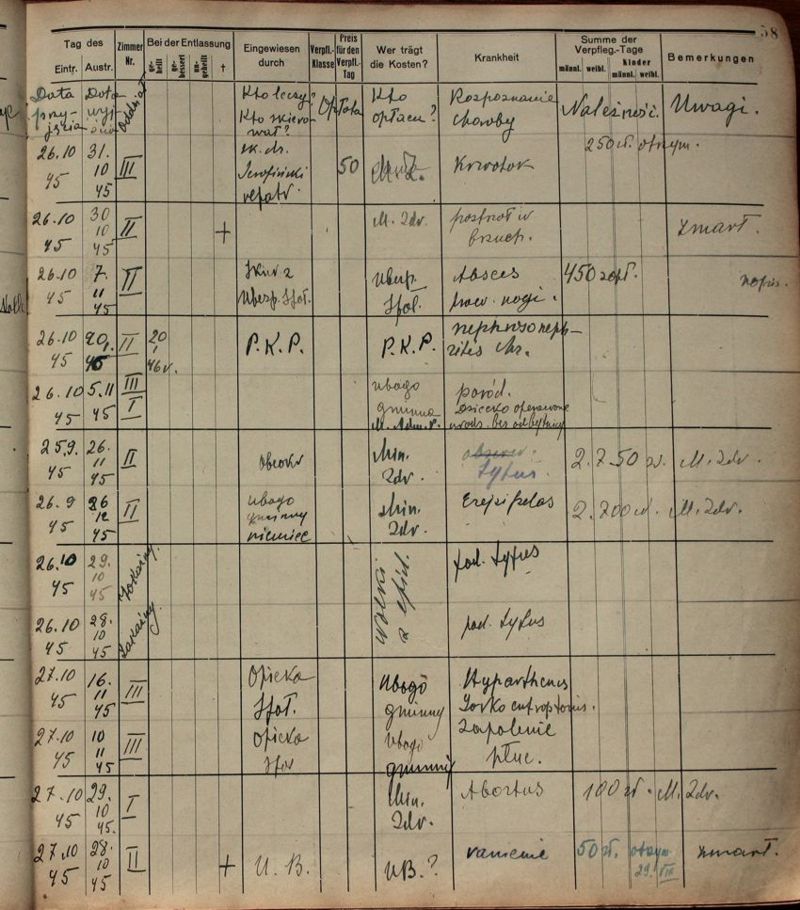 58
Tag des Zimmer Nr. Bei der Entlassung Eingewiesen durch Verpfl.-Klasse Preis für den Verpfl.-Tag Wer trägt die Kosten? Krankheit Summe der Verpfleg.-Tage Bemerkungen
Eintr. Austr. geheilt gebessert ungeheilt † männl. weibl. Kinder männl. weibl.
Data przyjęcia Data Oddział Kto leczy? Kto skierował? Opłata Kto opłaca? Rozpoznanie choroby Należność. Uwagi.
26.10 45 31. 10 45 III repatr. 50 Krwotok 250 zł. otrzym.
26.10 45 30 10 45 II + M. Zdr. postrzał w brzuch. zmarł.
26.10 45 7. 11 45 II Ubezp. Społ. Ubezp. Społ. Absces praw. nogi. 450 zapł.
26.10 45 20. 45 II 20 1 46 r. P.K.P. P.K.P. nephrosonephritis chr.
26.10 45 5.11 45 III I ubogo gminna poród. Dziecko operowane
25.9. 45 26. 11 45 II Min. Zdr. tyfus. 2.750 zł. M. Zdr.
26.9 45 26 12 45 II ubogo gminny niemiec Min. Zdr. Erysipelas 2.700 zł. M. Zdr.
26.10 45 29. 10 45 Zakaźny. pod. tyfus
26.10 45 28. 10 45 Zakaźny pod. tyfus
27.10 45 16. 11 45 III Opieka Społ. Ubogo gminny
27.10 45 10 11 45 III Opieka Społ. Ubogo gminny Zapalenie płuc.
27.10 45 29. 10 45. I Min. Zdr. Abortus 100 zł. M. Zdr.
27.10 45 28. 10 45 II + U.B. UB.? ranienie 50 zł. otrzym. 29. VIII zmarł.